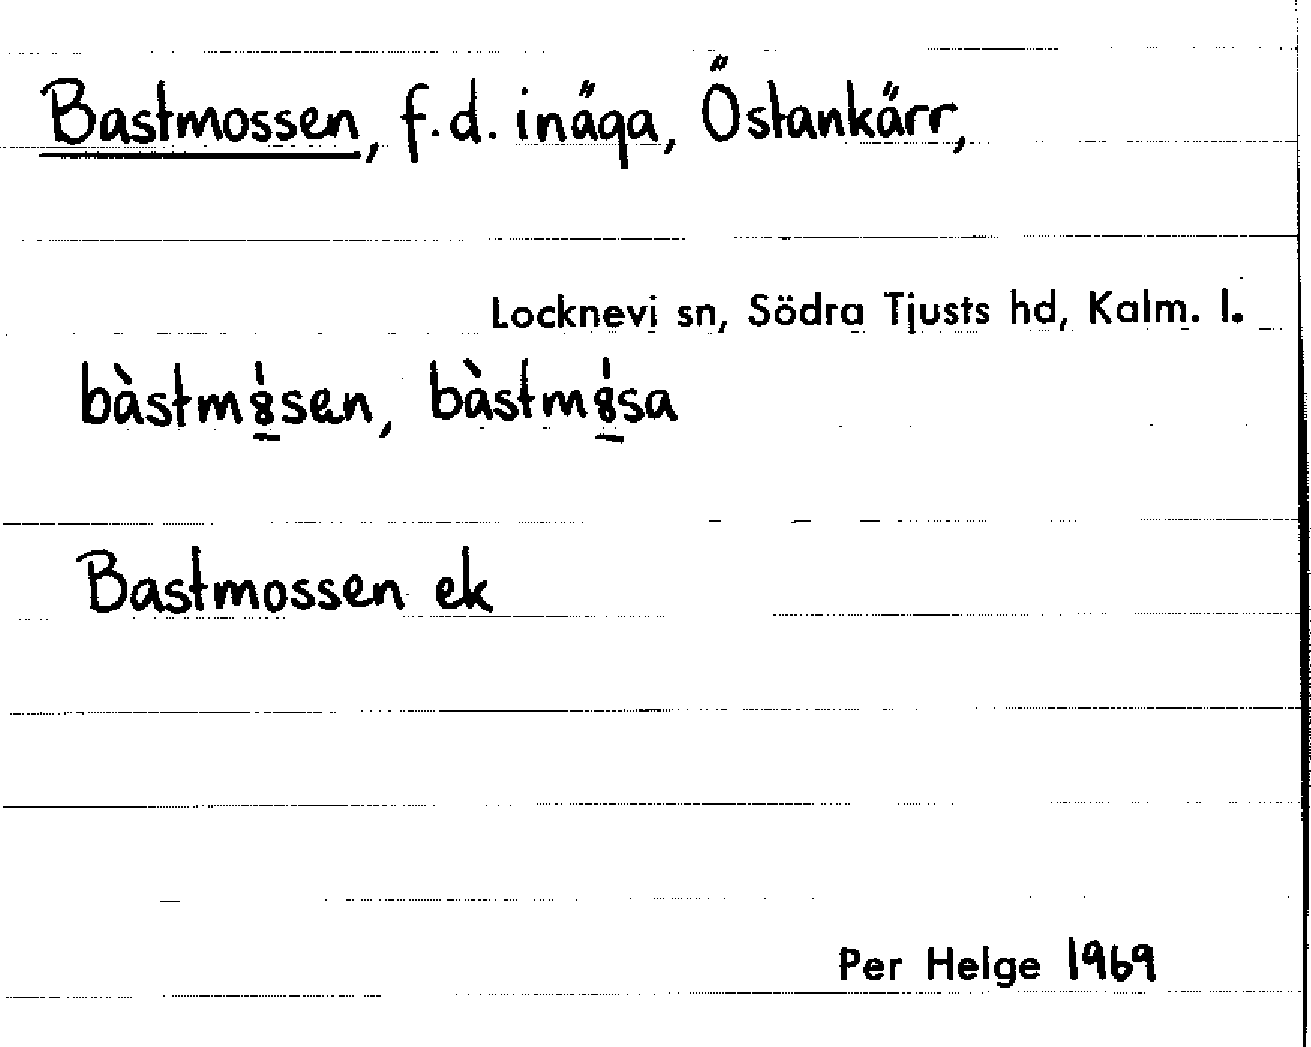 Bastmossen, f.d. inäga, Östankärr,
Locknevi sn, Södra Tjusts hd, Kalm. l.
bàstm8̲́sen, bàstm8̲́sa
Bastmossen ek
Per Helge 1969